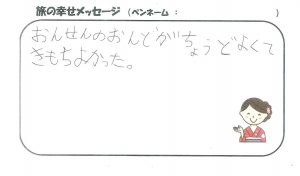 旅の幸せメッセージ （ペンネーム：　　　　　　　）
おんせんのおんどがちょうどよくて
きもちよかった。